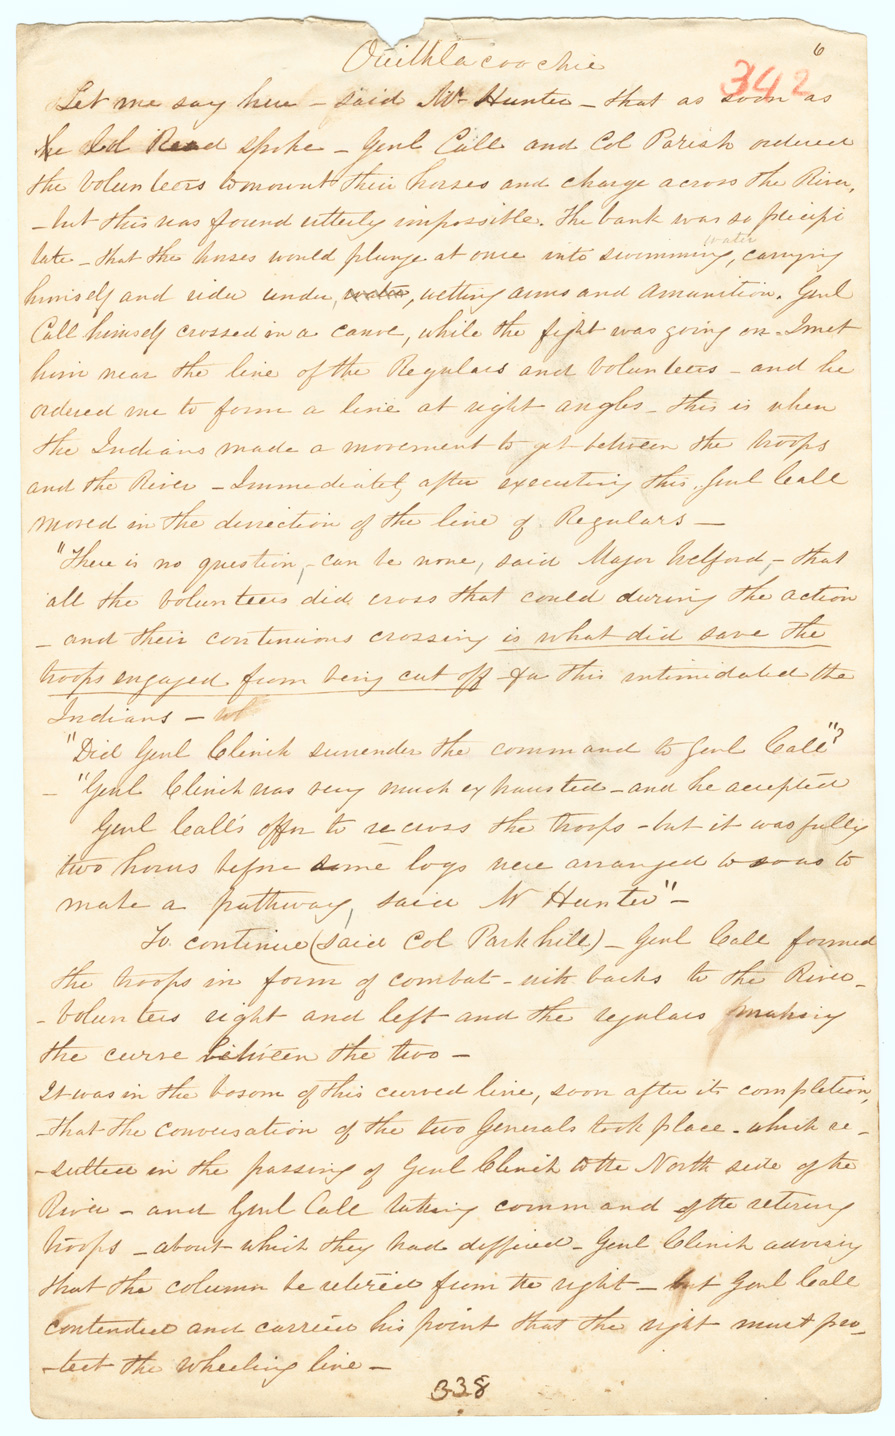 Ouithlacoochie
6
342
Let me say here – said Mr Hunter – that as soon as
he Col Read spoke – Genl Call and Col Parish ordered
the volunteers to mount their horses and charge across the River,
– but this was found utterly impossible. The bank was so precipi
tate – that the horses would plunge at once into swimming water, carrying
himself and rider under, water, wetting arms and amunition. Genl
Call himself crossed in a canoe, while the fight was going on. I met
him near the line of the Regulars and volunteers – and he
ordered me to form a line at right angles – this is when
the Indians made a movement to get between the troops
and the River – Immediately after executing this, Genl Call
moved in the direction of the line of Regulars —
"There is no question, – can be none, said Major Welford, – that
all the volunteers did cross that could during the action
– and their continuous crossing is what did save the
troops engaged from being cut off – for this intimidated the
Indians –
"Did Genl Clinch surrender the command to Genl Call"?
– "Genl Clinch was very much exhausted – and he accepted
Genl Call's offer to recross the troops – but it was fully
two hours before some logs were arranged so as to
make a pathway, said Mr Hunter" –
To continue (said Col Parkhill) – Genl Call formed
the troops in form of combat – with backs to the River –
– volunteers right and left and the regulars making
the curve between the two –
It was in the bosom of this curved line, soon after its completion,
– that the conversation of the two Generals took place – which re –
– sulted in the passing of Genl Clinch to the North side of the
River – and Genl Call taking command of the retiring
troops – about which they had differed – Genl Clinch advising
that the column be retired from the right – but Genl Call
contended and carried his point that the right must pro –
– tect the wheeling line –
338